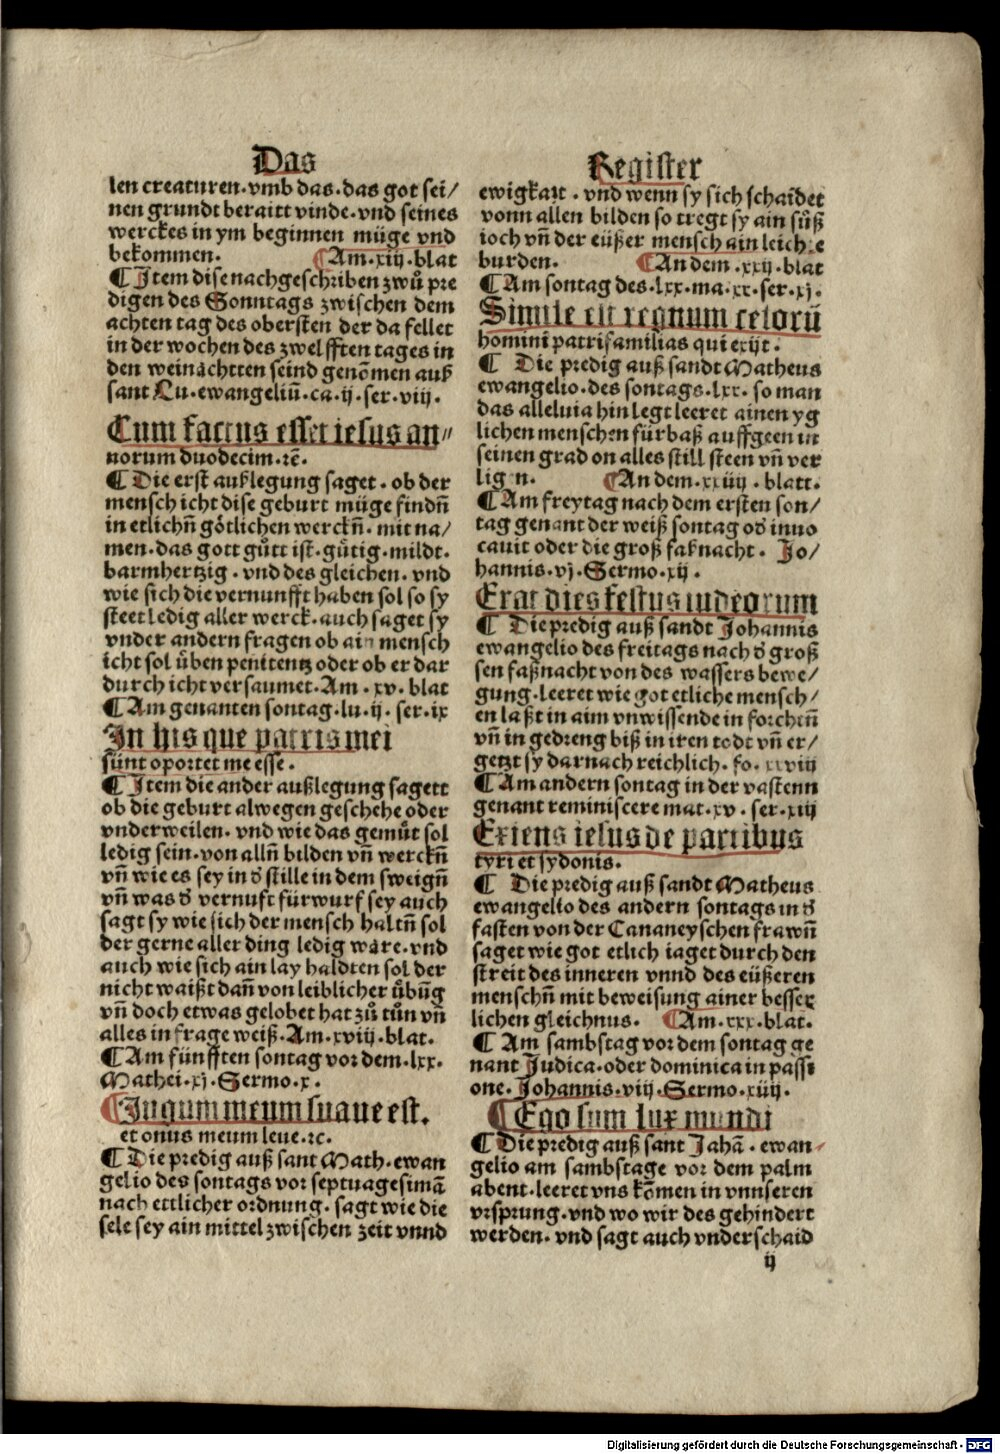 Das
len creaturen. vmb das. das got sei/
nen grundt beraitt vinde. vnd seines
werckes in ym beginnen müge vnd
bekommen. ¶Am. xiij. blat
¶Item dise nachgeschriben zwů pre
digen des Sonntags zwischen dem
achten tag des obersten der da fellet
in der wochen des zwelfften tages in
den weinächtten seind genōmen auß
sant Lu. ewangeliū. ca. ij. ser. viij.
Cum factus esset iesus an⸗
norum duodecim. ⁊ē.
¶Die erst außlegung saget. ob der
mensch icht dise geburt müge findn̄
in etlichn̄ götlichen werckn̄. mit na/
men. das gott gůtt ist. gütig. mildt.
barmhertzig. vnd des gleichen. vnd
wie sich die vernunfft haben sol so sy
steet ledig aller werck. auch saget sy
vnder andern fragen ob ain mensch
icht sol üben penitentz oder ob er dar
durch icht versaumet. Am. xv. blat
¶Am genanten sontag. lu. ij. ser. ix
In his que patris mei
sunt oportet me esse.
¶Item die ander außlegung sagett
ob die geburt alwegen geschehe oder
vnderweilen. vnd wie das gemůt sol
ledig sein. von alln̄ bilden vn̄ werckn̄
vn̄ wie es sey in d̄ stille in dem sweign̄
vn̄ was d̄ vernuft fürwurf sey auch
sagt sy wie sich der mensch haltn̄ sol
der gerne aller ding ledig wäre. vnd
auch wie sich ain lay haldten sol der
nicht waißt dan̄ von leiblicher übūg
vn̄ doch etwas gelobet hat zů tůn vn̄
alles in frage weiß. Am. xviij. blat.
¶Am fünfften sontag vor dem. lxx.
Mathei. xj. Sermo. x.
¶Jugum meum suaue est.
et onus meum leue. ⁊c.
¶Die predig auß sant Math. ewan
gelio des sontags vor septuagesimā
nach ettlicher ordnung. sagt wie die
sele sey ain mittel zwischen zeit vnnd
Register
ewigkait. vnd wenn sy sich schaidet
vonn allen bilden so tregt sy ain süß
ioch vn̄ der eüßer mensch ain leichte
burden. ¶An dem. xxij. blat
¶Am sontag des. lxx. ma. xx. ser. xj.
Simile est regnum celorū
homini patrifamilias qui exijt.
¶ Die predig auß sandt Matheus
ewangelio. des sontags. lxx. so man
das alleluia hin legt leeret ainen yg
lichen menschen fürbaß auffgeen in
seinen grad on alles still steen vn̄ ver
lig n. ¶An dem. xxiiij. blatt.
¶Am freytag nach dem ersten son/
tag genant der weiß sontag od̄ inuo
cauit oder die groß faßnacht. Jo/
hannis. vj. Sermo. xij.
Erat dies festus iudeorum
¶ Die predig auß sandt Johannis
ewangelio des freitags nach d̄ groß
sen faßnacht von des wassers bewe/
gung. leeret wie got etliche mensch/
en laßt in aim vnwissende in forchtn̄
vn̄ in gedreng biß in iren todt vn̄ er/
getzt sy darnach reichlich. fo. xxviij
¶Am andern sontag in der vastenn
genant reminiscere mat. xv. ser. xiij
Exiens iesus de partibus
tyri et sydonis.
¶ Die predig auß sandt Matheus
ewangelio des andern sontags in d̄
fasten von der Cananeyschen frawn̄
saget wie got etlich iaget durch den
streit des inneren vnnd des eüßeren
menschn̄ mit beweisung ainer besser
lichen gleichnus. ¶Am. xxx. blat.
¶ Am sambstag vor dem sontag ge
nant Judica. oder dominica in passi
one. Johannis. viij. Sermo. xiiij.
¶Ego sum lux mundi
¶Die predig auß sant Jahā. ewan⸗
gelio am sambstage vor dem palm
abent. leeret vns kōmen in vnnseren
vrsprung. vnd wo wir des gehindert
werden. vnd sagt auch vnderschaid
ij
Digitalisierung gefördert durch die Deutsche Forschungsgemeinschaft - DFG